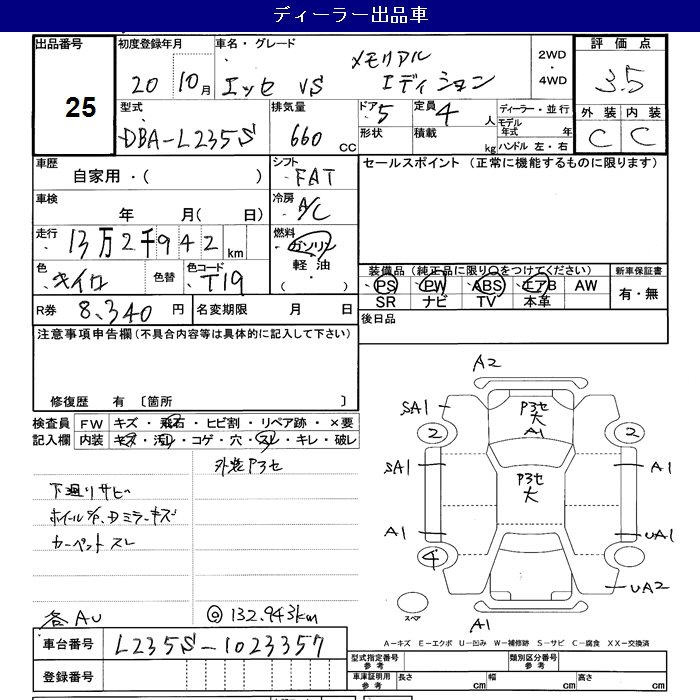 ディーラー出品車
出品番号 初度登録年月 車名・グレード 評価点
25
20 10月 エッセ VS メモリアル エディション 2WD・4WD 3.5
型式 排気量 ドア 定員 ディーラー・並行 外装 内装
DBA-L235S 660 CC 5 4人 C C
形状 積載 kg モデル年式 年
ハンドル 左・右
車歴 シフト セールスポイント (正常に機能するものに限ります)
自家用・( ) FAT
車検 冷房
年 月( 日) A/C
走行 燃料
13万2千942 km ガソリン
軽油
・( )
色 色替 色コード
キイロ T19
装備品(純正品に限り○をつけてください) 新車保証書
PS PW ABS エアB AW 有・無
SR ナビ TV 本革
R券 8,340 円 名変期限 月 日 後日品
注意事項申告欄(不具合内容等は具体的に記入して下さい)
修復歴 有 〔箇所 〕
検査員 FW キズ・飛石・ヒビ割・リペア跡・×要
記入欄 内装 キズ・汚れ・コゲ・穴・スレ・キレ・破レ
外装P3セ
下廻りサビ
ホイールS/P、Dミラーキズ
カーペットスレ
各AU ◎132.943km
A2
SA1 P3セ 大 A1
2 2
SA1 P3セ 大 A1
A1 UA1
4
UA2
スペア A1
A-キズ E-エクボ U-凹み W-補修跡 S-サビ C-腐食 XX-交換済
車台番号 L235S-1023357
型式指定番号 参考 類別区分番号 参考
登録番号
車庫証明用 参考 長さ cm 幅 cm 高さ cm